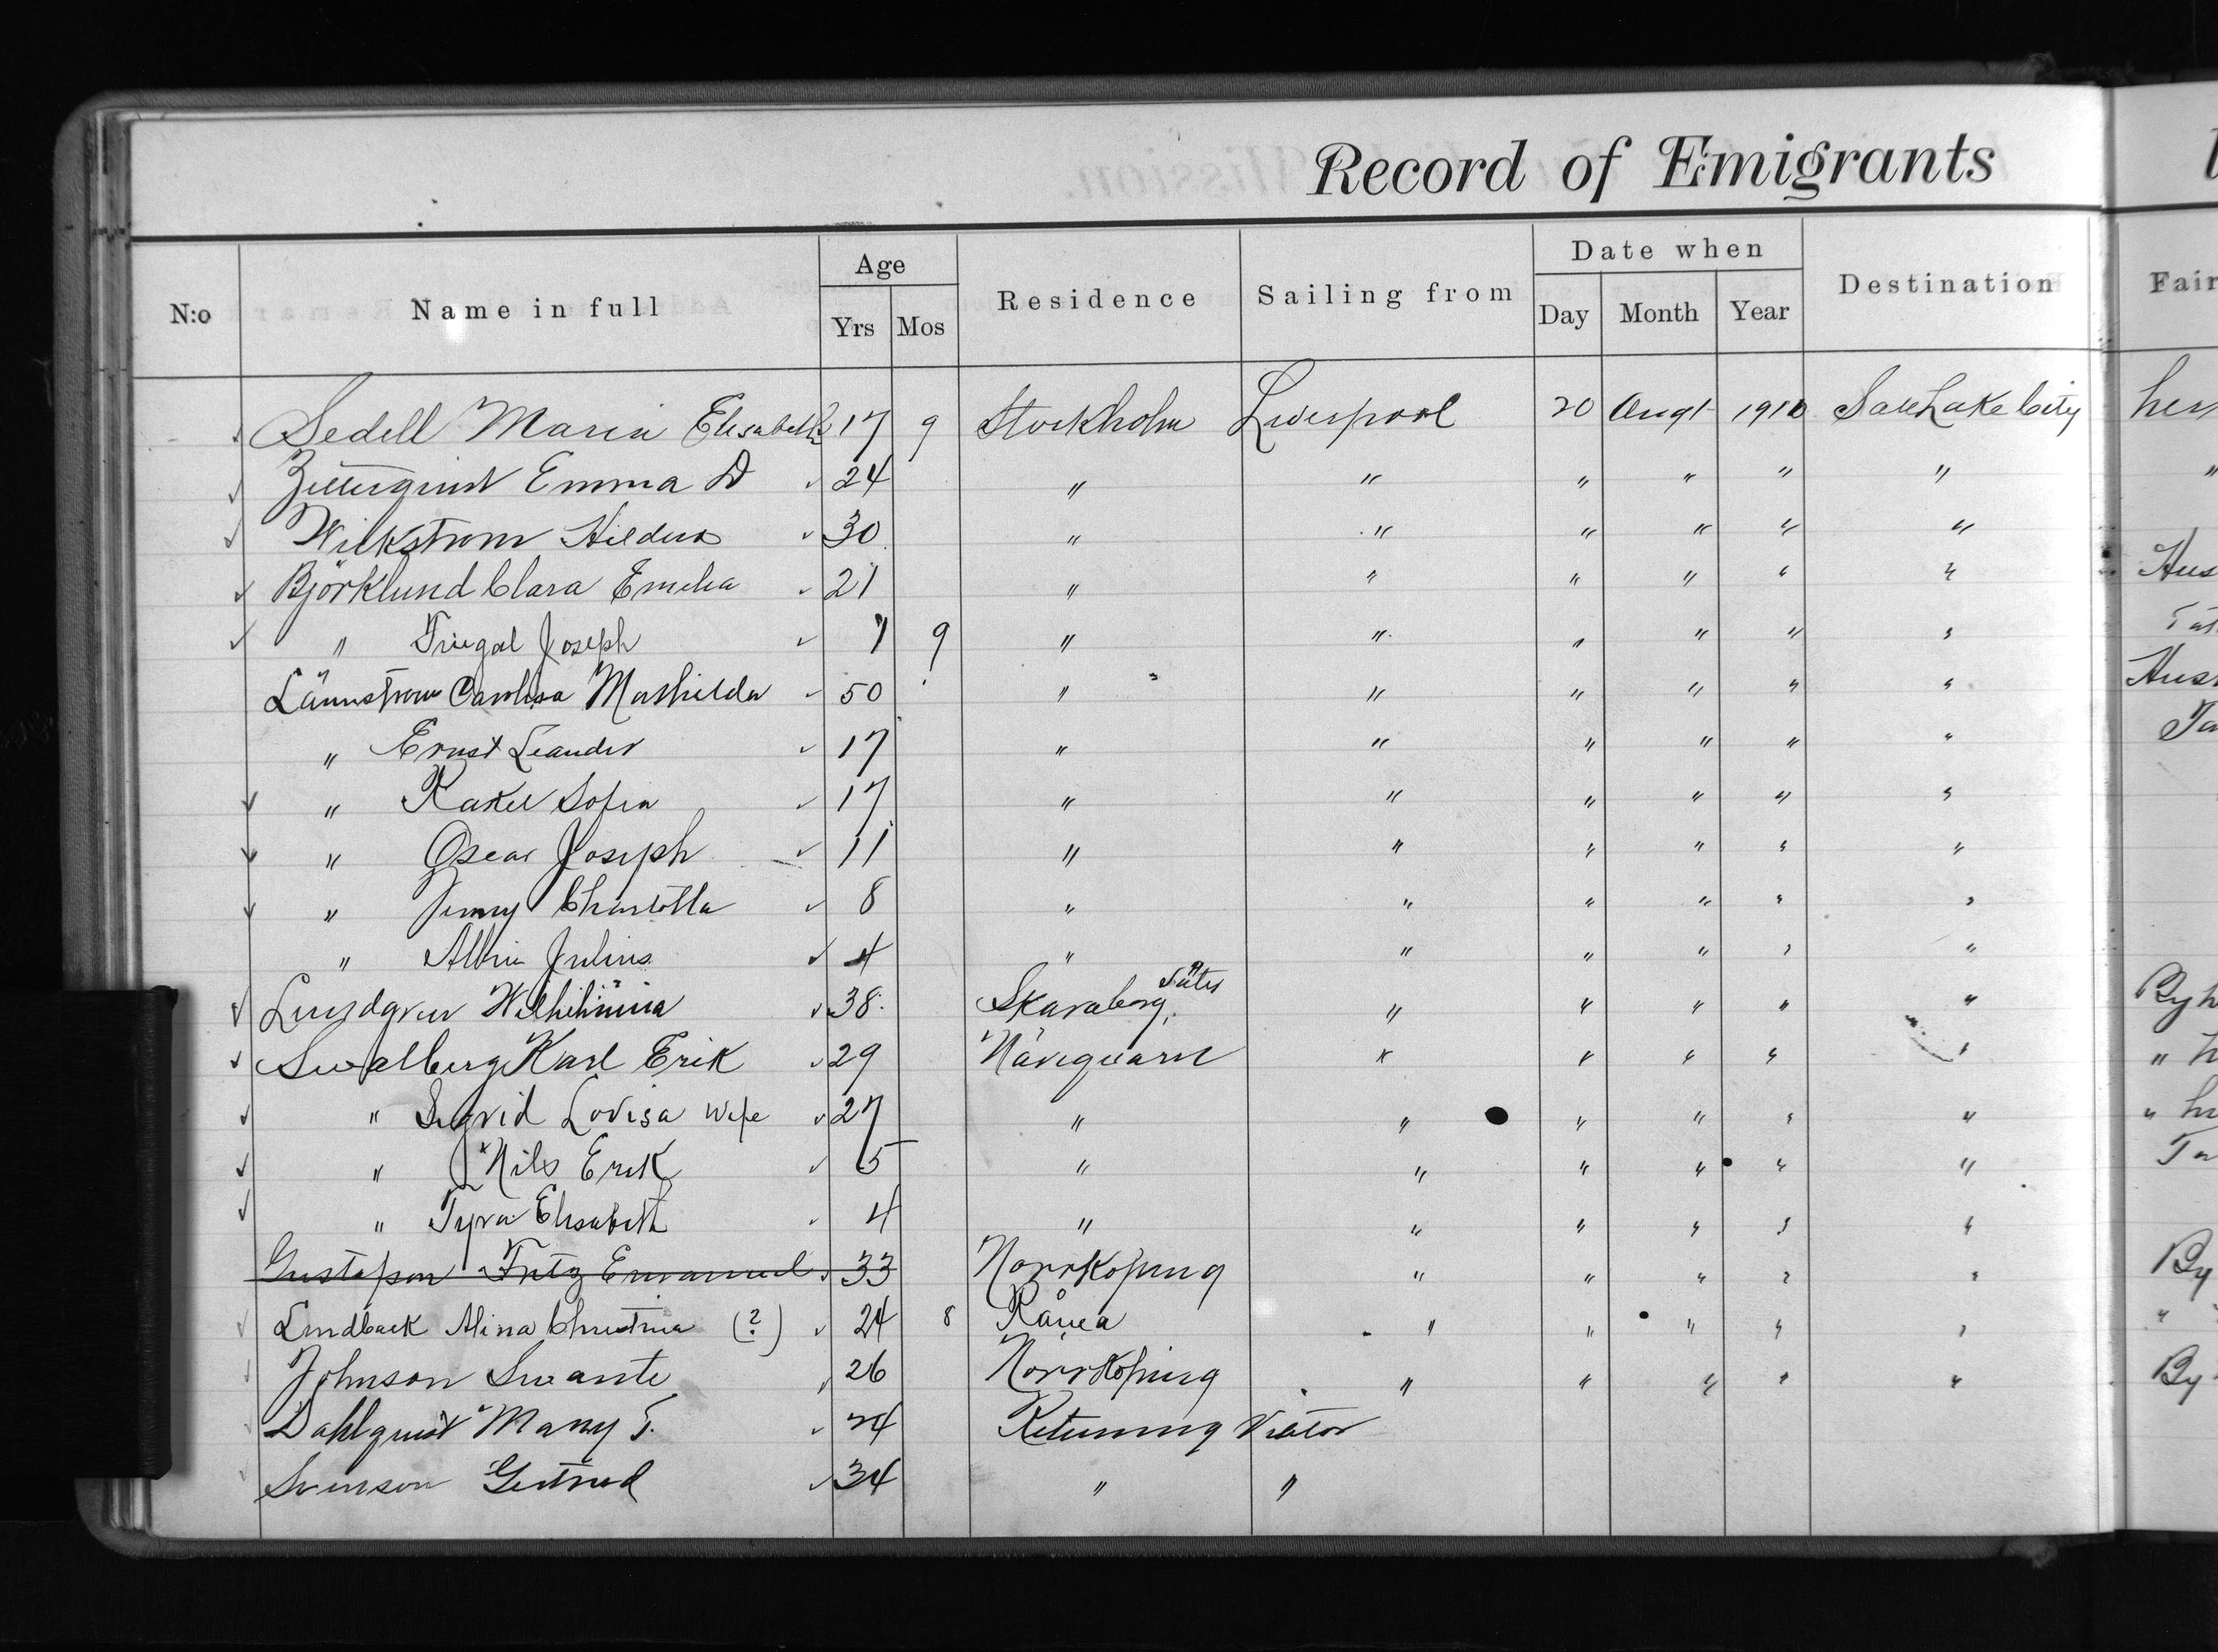 Record of Emigrants
N:o Name in full Age Yrs Mos Residence Sailing from Date when Day Month Year Destination Fair
Sedell Maria Elisabeth 17 9 Stockholm Liverpool 20 Augt 1910 Salt Lake City her
Zetterquist Emma D 24 " " " " " " "
Wilkstrom Hildur 30 " " " " " "
Björklund Clara Emelia 21 " " " " " " Hus
" Joseph 1 9 " " " " " "
Lännstrom Carolina Mathilda 50 " " " " " "
" Ernst Leander 17 " " " " " "
" Rakel Sofia 17 " " " " " "
" Oscar Joseph 11 " " " " " "
" Jenny Charlotta 8 " " " " " "
" Albin Julius 4 " " " " " "
Lundgren Wilhelmina 38 Skaraberg, " " " " "
Swalberg Karl Erik 29 Näveqvarn " " " " " "
" Sigrid Lovisa wife 27 " " " " " " "
" Nils Erik 5 " " " " " "
" Tyra Elisabeth 4 " " " " " "
Gustafson Fritz Emanuel 33 Norrköping " " " " " By
Lindback Alina Christina (?) 24 8 Rånea " " " " " "
Johnson Swante 26 Norrköping " " " " " By
Dahlquist Mary T. 24 Returning Visitor
Svenson Gertrud 34 " "